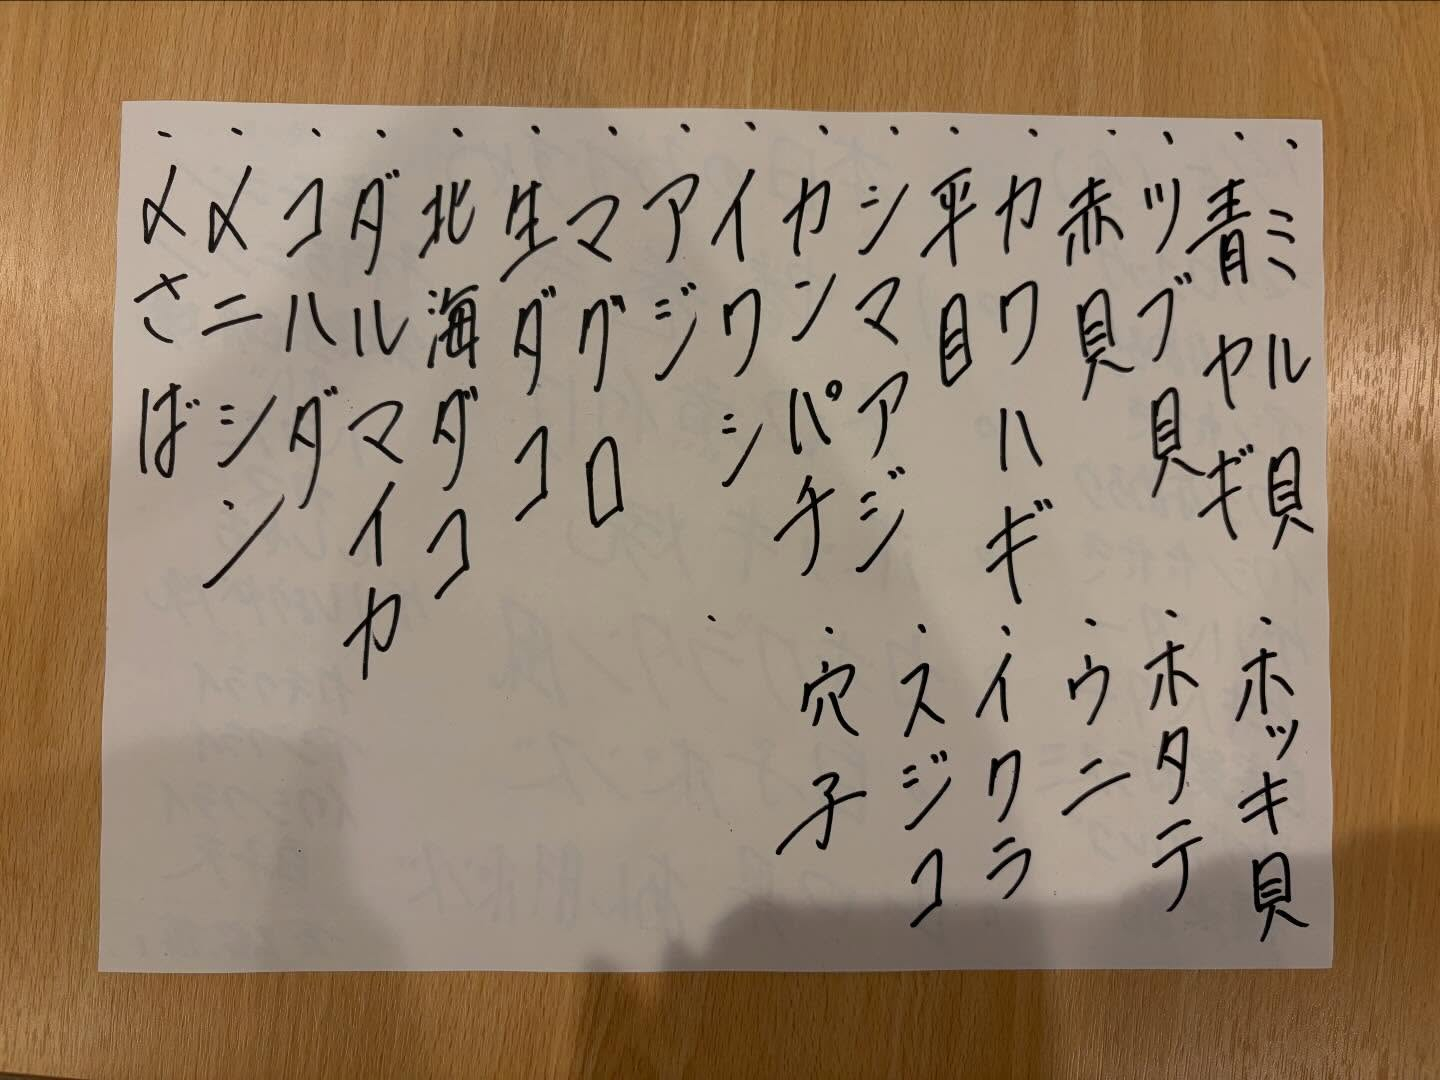 ・ミル貝
・青ヤギ
・ツブ貝
・赤貝
・カワハギ
・平目
・シマアジ
・カンパチ
・イワシ
・アジ
・マグロ
・生ダコ
・北海ダコ
・ダルマイカ
・コハダ
・〆ニシン
・〆さば
・ホッキ貝
・ホタテ
・ウニ
・イクラ
・スジコ
・穴子
・